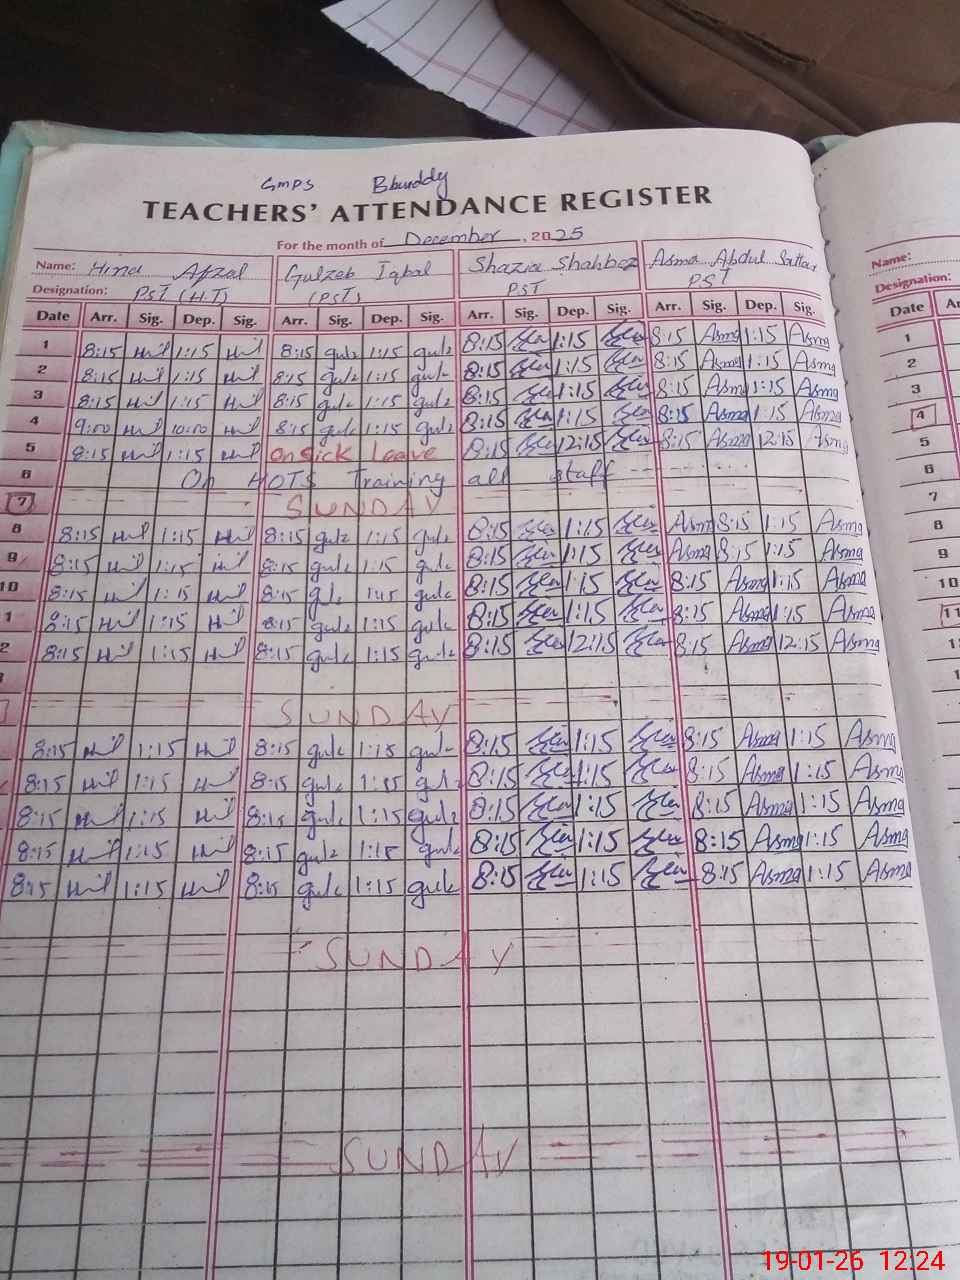 GMPS Bbuddy
TEACHERS' ATTENDANCE REGISTER
For the month of December, 2025
Name: Hina Afzal Gulzeb Iqbal Shazia Shahbaz Asma Abdul Sattar Name:
Designation: PST (H.T) (PST) PST PST Designation:
Date Arr. Sig. Dep. Sig. Arr. Sig. Dep. Sig. Arr. Sig. Dep. Sig. Arr. Sig. Dep. Sig. Date
1 8:15 1:15 8:15 gulz 1:15 gulz 8:15 1:15 8:15 Asma 1:15 Asma 1
2 8:15 1:15 8:15 gulz 1:15 gulz 8:15 1:15 8:15 Asma 1:15 Asma 2
3 8:15 1:15 8:15 gulz 1:15 gulz 8:15 1:15 8:15 Asma 1:15 Asma 3
4 9:00 10:00 8:15 gulz 1:15 gulz 8:15 1:15 8:15 Asma 1:15 Asma 4
5 8:15 1:15 On Sick Leave 8:15 12:15 8:15 Asma 12:15 Asma 5
6 On HOTS Training all staff 6
7 SUNDAY 7
8 8:15 1:15 8:15 gulz 1:15 gulz 8:15 1:15 Asma 8:15 1:15 Asma 8
9 8:15 1:15 8:15 gulz 1:15 gulz 8:15 1:15 Asma 8:15 1:15 Asma 9
10 8:15 1:15 8:15 gulz 1:15 gulz 8:15 1:15 8:15 Asma 1:15 Asma 10
1 8:15 1:15 8:15 gulz 1:15 gulz 8:15 1:15 8:15 Asma 1:15 Asma 11
2 8:15 1:15 8:15 gulz 1:15 gulz 8:15 12:15 8:15 Asma 12:15 Asma
SUNDAY
8:15 1:15 8:15 gulz 1:15 gulz 8:15 1:15 8:15 Asma 1:15 Asma
8:15 1:15 8:15 gulz 1:15 gulz 8:15 1:15 8:15 Asma 1:15 Asma
8:15 1:15 8:15 gulz 1:15 gulz 8:15 1:15 8:15 Asma 1:15 Asma
8:15 1:15 8:15 gulz 1:15 gulz 8:15 1:15 8:15 Asma 1:15 Asma
8:15 1:15 8:15 gulz 1:15 gulz 8:15 1:15 8:15 Asma 1:15 Asma
SUNDAY
SUNDAY
19-01-26 12:24